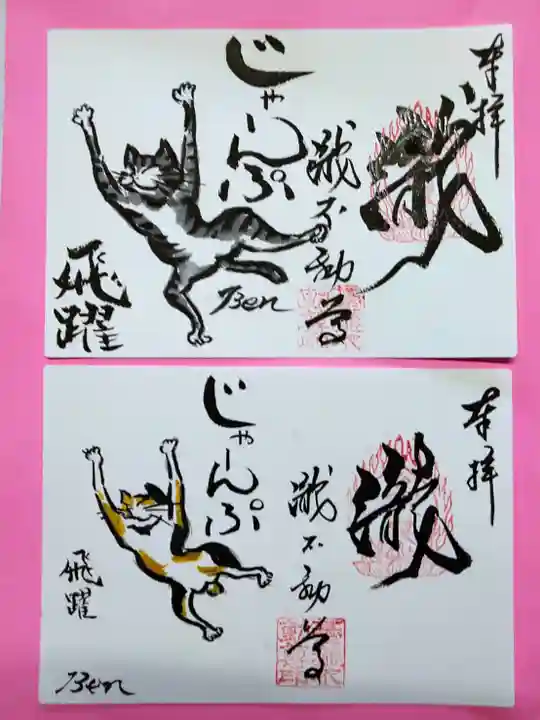 奉拝
瀧
瀧不動尊
じゃーんぷ
飛躍
Ben
奉拝
瀧
瀧不動尊
じゃーんぷ
飛躍
Ben